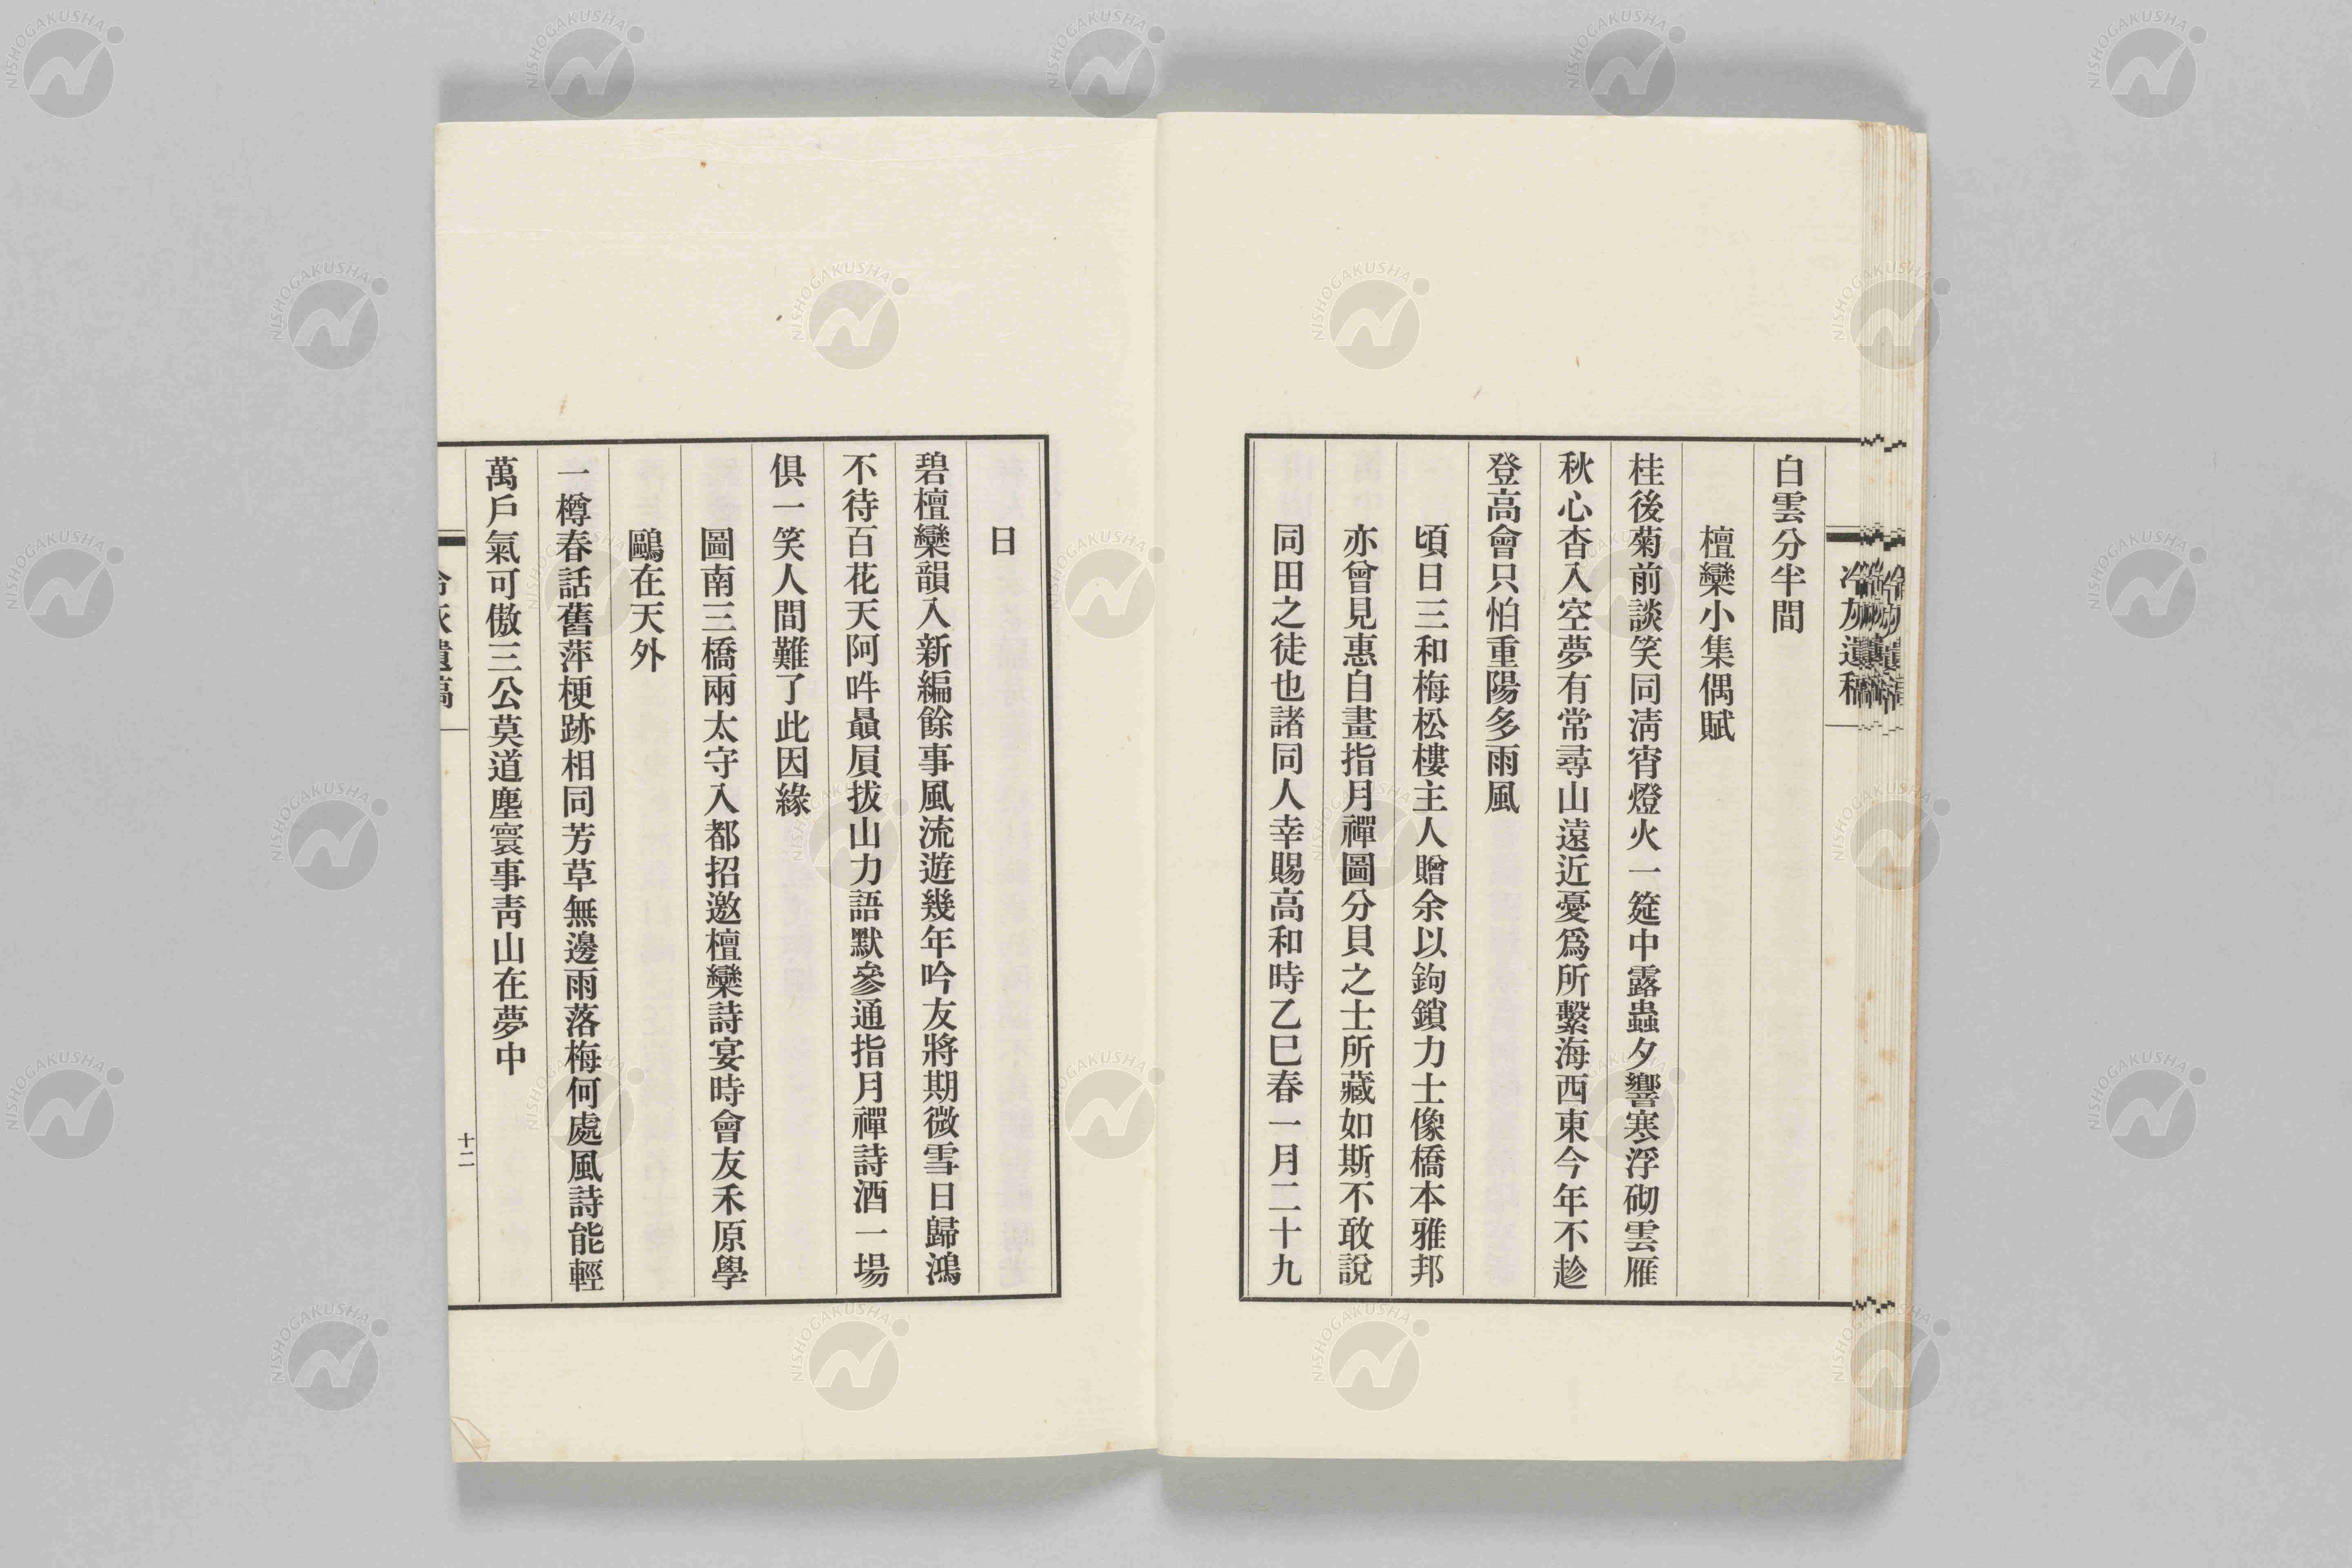 冷灰遺稿
白雲分半間
檀欒小集偶賦
桂後菊前談笑同淸宵燈火一筵中露蟲夕響寒浮砌雲雁
秋心杳入空夢有常尋山遠近憂爲所繫海西東今年不趁
登高會只怕重陽多雨風
頃日三和梅松樓主人贈余以鉤鎖力士像橋本雅邦
亦曾見惠自畫指月禪圖分貝之士所藏如斯不敢說
同田之徒也諸同人幸賜高和時乙巳春一月二十九
日
碧檀欒韻入新編餘事風流遊幾年吟友將期微雪日歸鴻
不待百花天阿吽贔屓拔山力語默參通指月禪詩酒一場
俱一笑人間難了此因緣
圖南三橋兩太守入都招邀檀欒詩宴時會友禾原學
鷗在天外
一樽春話舊萍梗跡相同芳草無邊雨落梅何處風詩能輕
萬戶氣可傲三公莫道塵寰事靑山在夢中
冷灰遺稿
十二
NISHOGAKUSHA